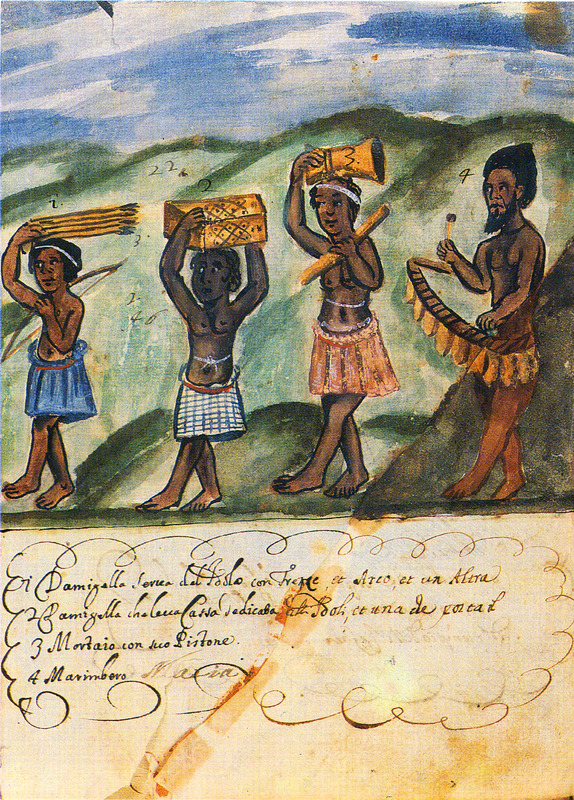 1
2 2.
2
3.
4
3.
2.
46
1 Damigella serva del Idolo con Freze, et Arco, et un Altra
2 Damigella che leva Cassa dedicata alli Idoli, et una che porta il
3 Mortaio con suo Pistone.
4 Marimbero Maria